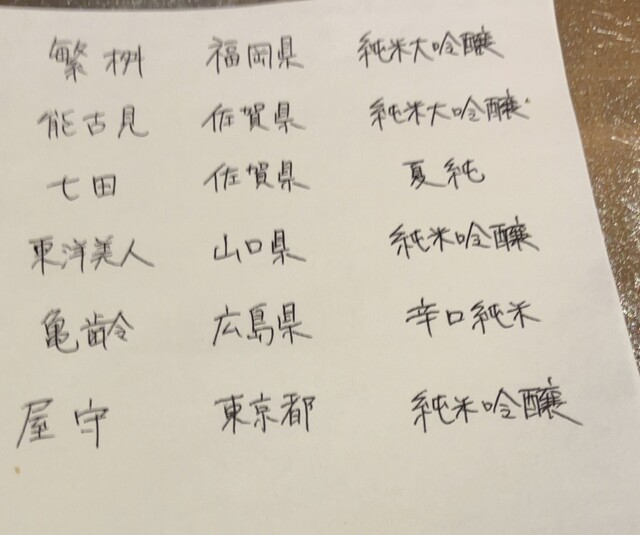 繁桝 福岡県 純米大吟醸
能古見 佐賀県 純米大吟醸
七田 佐賀県 夏純
東洋美人 山口県 純米吟醸
亀齢 広島県 辛口純米
屋守 東京都 純米吟醸